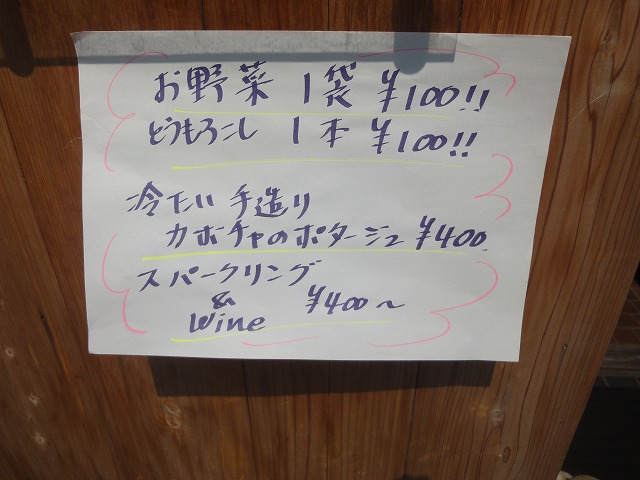 お野菜 1袋 ¥100!!
とうもろこし 1本 ¥100!!
冷たい手造り
カボチャのポタージュ ¥400
スパークリング
&
Wine ¥400〜